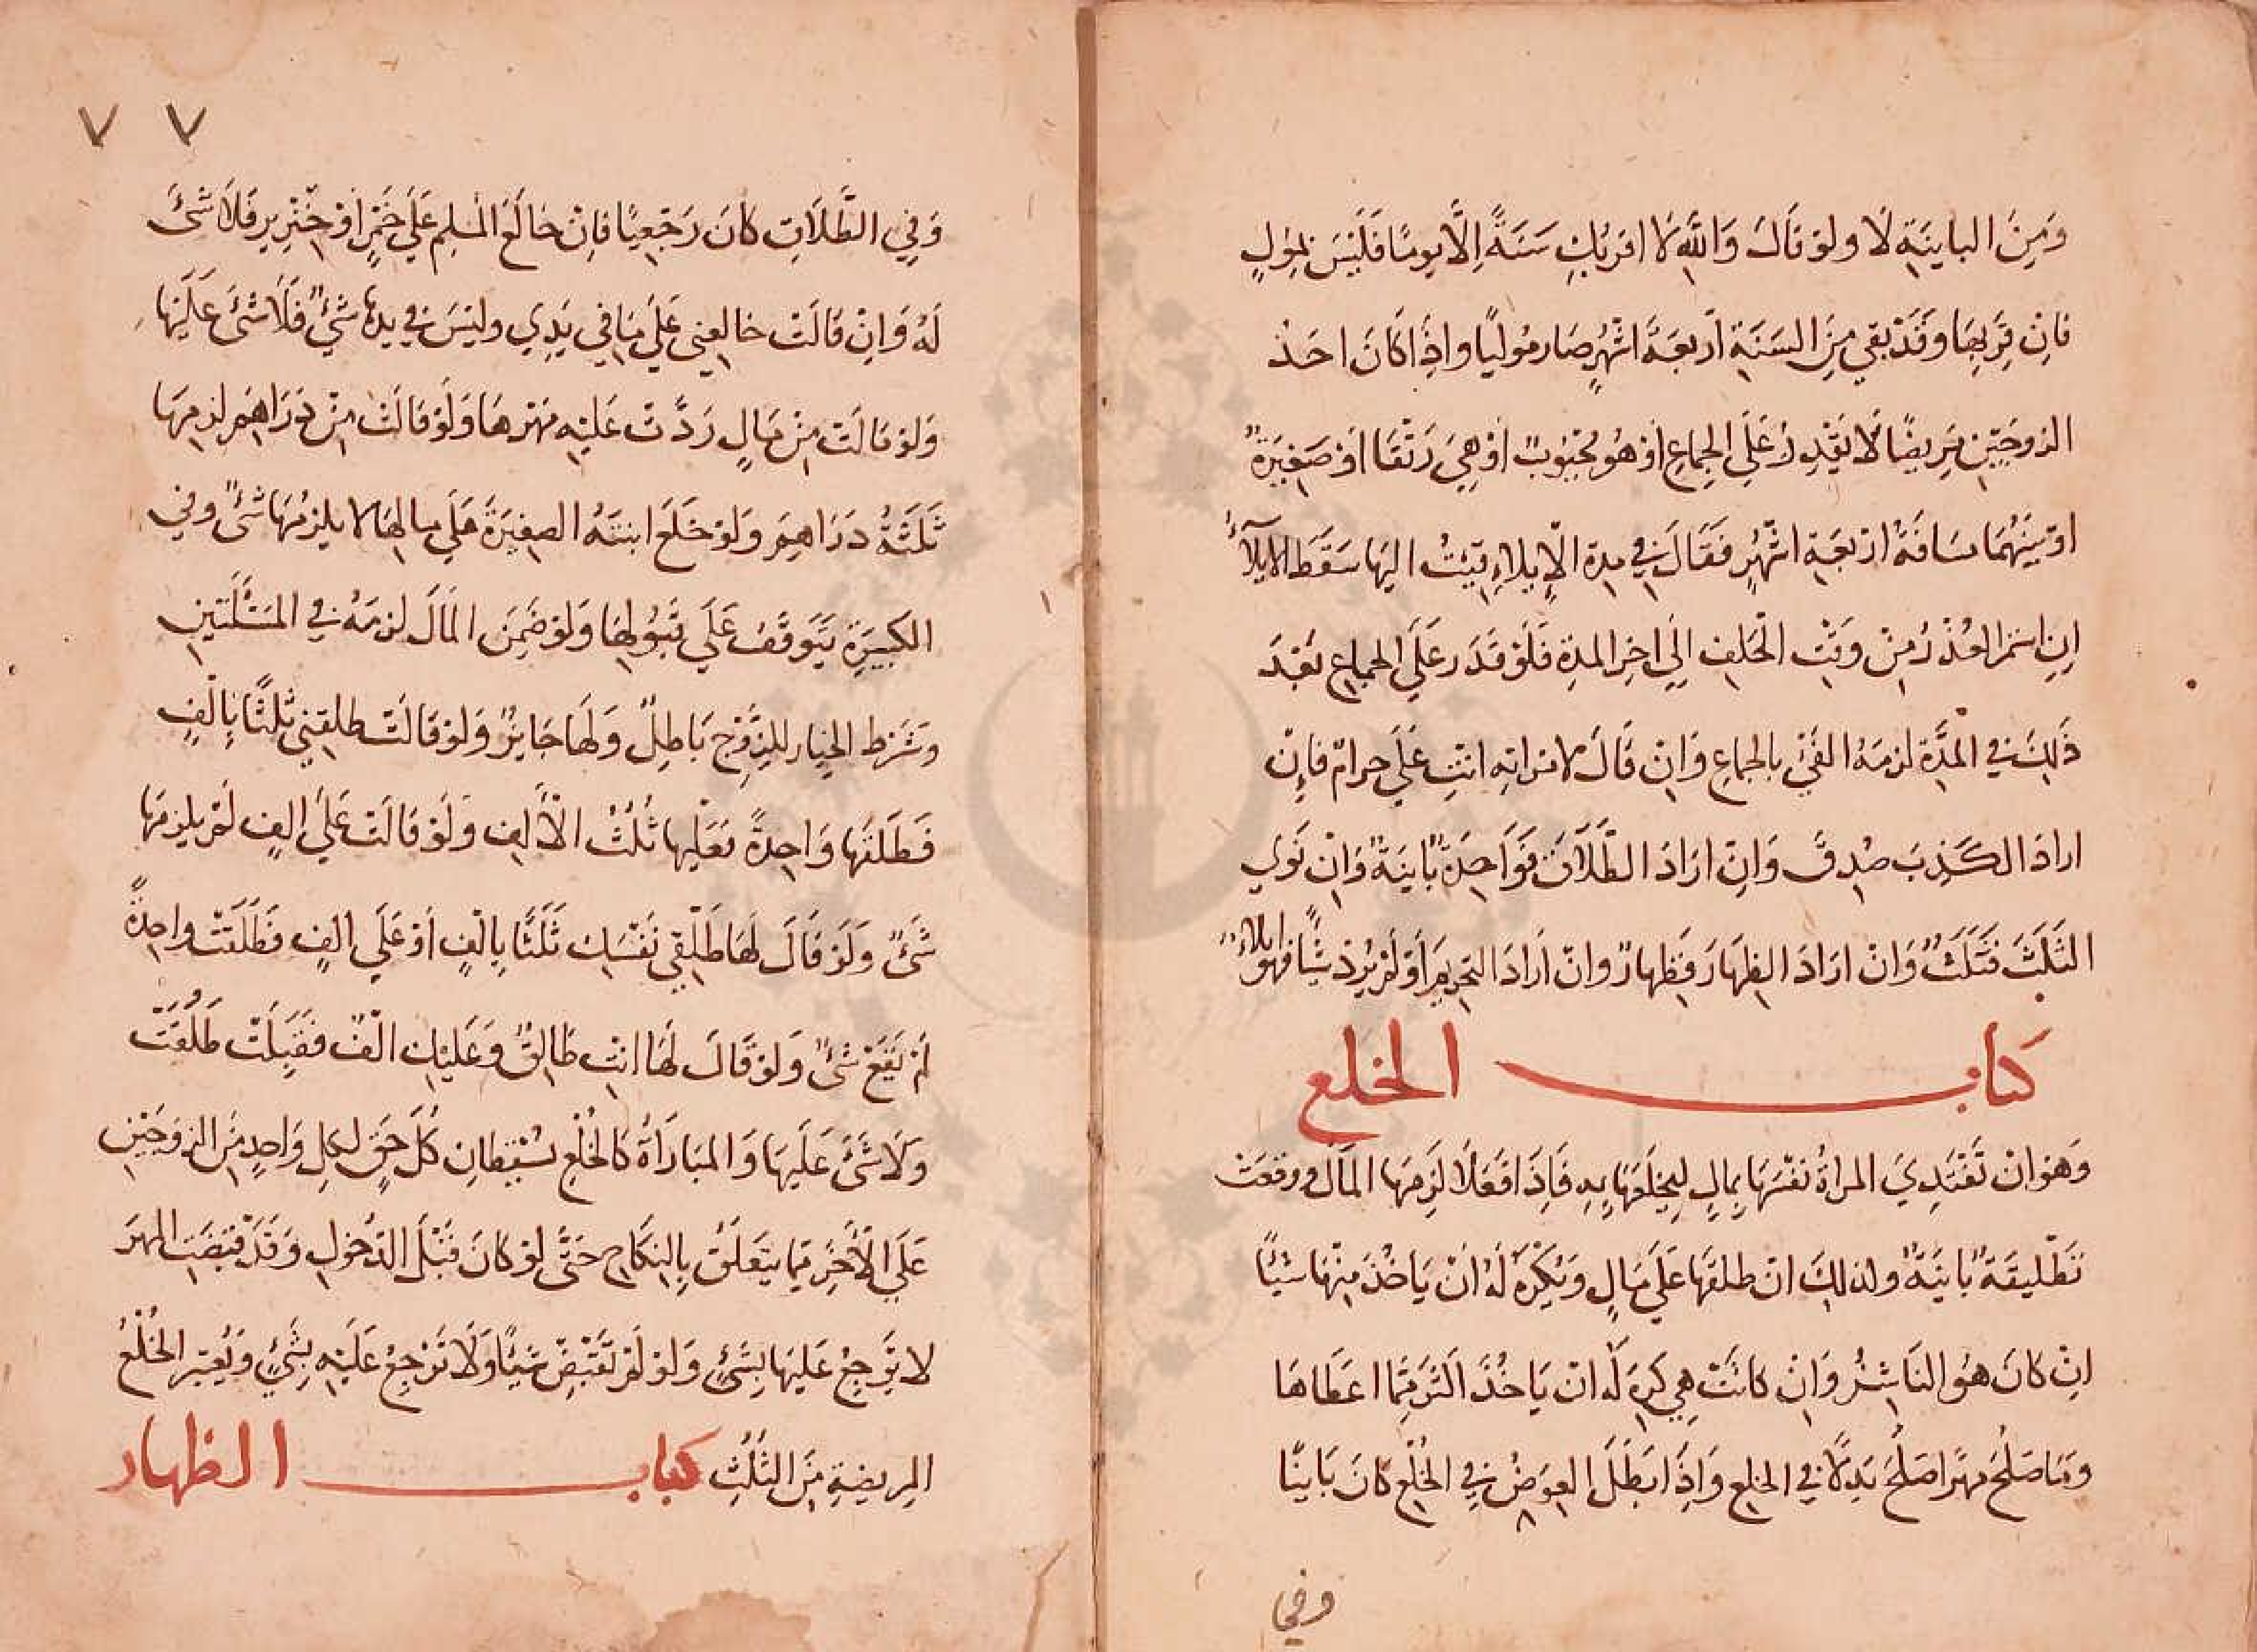 وَمِنَ الباينَةِ لَا ولو قَالَ وَاللَّهِ لَا اقربُكِ سَنَةً اِلَّا يومًا فَلَيْسَ بمُولٍ
فَاِنْ قَرِبَهَا وَقَدْ بَقي مِنَ السَنَةِ اَربعَةُ اشْهُرٍ صَار مُوليًا واِذَا كَانَ احَدُ
الزوجَيْنِ مَرِيضًا لَا يَقْدِرُ عَلَي الجِماعِ اَوْ هُو مَجْبُوبٌ اَوْ هِيَ رَتْقَا اَوْ صَغِيرَةٌ
اوْ بَيْنَهُمَا مسَافَةُ ارْبعَةِ اشْهُرٍ فَقَالَ في مدة الْاِيلاءِ فِئتُ اليهَا سَقَطَ الايلَآءُ
اِنِ استمر العُذْرُ مِنْ وَقْتِ الْحَلِفِ اِلَي اخِرِ المدةِ فَلَوْ قَدَر عَلَي الجماعِ بَعْدَ
ذَلِكَ في الْمدَّةِ لزمَهُ الفَيْ بالجماعِ وَاِنْ قَالَ لامراتِهِ انْتِ عَلَيَّ حرامٌ فَاِنْ
ارادَ الكَذِبَ صُدِقَ وَاِنْ ارَادَ الطَّلَاقَ فَوَاحِدَةٌ بَاينَةٌ وَاِنْ نَوَي
الثَلَثَ فَثَلَثٌ وَانْ ارَادَ الظِهَارَ فَظِهارٌ وانْ اَرادَ التحريمَ اَوْ لَمْ يُرِدْ شَيًّا فهُوَ ايلاءٌ
كتاب الخلع
وَهوَ انْ تَفْتَدِيَ المراةُ نفْسَهَا بِمالٍ لِيخلَعَهَا بِهِ فَاِذَا فَعَلَا لَزِمَهَا المَالُ ووقعَتْ
تَطْليقَةٌ بَاينَةٌ وكذلِكَ انْ طلقَهَا عَلَي مَالٍ وَيُكْرَهُ لَهُ اَنْ يَاخُذَ مِنْهَا شيْئًا
اِنْ كانَ هُوَ النَاشِزُ وَاِنْ كانَتْ هِي كَرِهَ لَهُ انْ يَاخُذَ اَكثَرَ مِمَّا اعْطَاهَا
ومَا صَلُحَ مَهْرًا صَلُحَ بَدَلًا في الخلعِ وَاِذَا بَطَلَ العِوَضُ في الخُلْعِ كَانَ بَاينًا
وفي
٧ ٧
وَفي الطَّلَاقِ كانَ رَجْعِيًا فَاِنْ خَالَعَ المُسْلِم عَلَي خَمْرٍ اوْ خِنْزِيرٍ فَلَا شَئَ
لَهُ وَاِنْ قَالَتْ خالِعني عَلَي مَا في يَدِي وليْسَ في يدهَا شَئٌ فَلَا شَئَ عَلَيْهَا
وَلوْ قالَتْ مِنْ مَالٍ رَدَّتْ عَلَيْهِ مَهْرهَا وَلَوْ قَالَتْ مِنْ دَرَاهِمَ لزمهَا
ثَلَثَةُ دَرَاهِمَ وَلوْ خَلَعَ ابنتَهُ الصغِيرَةَ عَلَي مالِهَا لا يلزمُهَا شَئٌ وفي
الكبيرَةِ يَتَوقَّفُ عَلَي قَبُولِهَا وَلَوْ ضَمِنَ المَالَ لزمَهُ في المَسْئَلَتَيْنِ
وَشَرْط الخِيارِ للزَّوْجِ بَاطِلٌ وَلَهَا جَايزٌ وَلوْ قَالَتْ طلقني ثَلثًا بِاَلْفٍ
فَطَلقَهَا وَاحِدَةً فعَلَيْها ثُلُثُ الْاَلْفِ وَلَوْ قَالَتْ عَلَي الفٍ لَمْ يلزمهَا
شَئٌ وَلَوْ قَالَ لَهَا طَلِّقِي نَفْسَكِ ثَلَثًا بِالْفٍ اَوْ عَلَي الفٍ فَطَلَقَتْ واحِدةً
لَمْ تَقَعْ شَئٌ وَلوْ قَالَ لَهَا انْتِ طَالِقٌ وَعَلَيْكِ الْفٌ فَقَبِلَتْ طَلُقَتْ
وَلَا شَئَ عَلَيْهَا وَالمبَارَاةُ كَالخُلْعِ يُسْقِطانِ كُلَّ حَقٍ لكلِ وَاحِدٍ مِنَ الزوجَيْنِ
عَلَي الْاَخَرِ مما يَتَعَلَقُ بِالنِكَاحِ حَتَّى لوْ كَانَ قَبْلَ الدُخولِ وَقَدْ قَبَضَتِ المهرَ
لا يَرْجِعُ عَليهَا بِشَئٍ وَلو لَمْ تَقْبِضْ شيْئًا وَلَا تَرْجِعُ عَلَيْهِ بِشَئٍ وَيُعْتبر الخُلْعُ
المرِيضةِ مِنَ الثُلُثِ كتاب الظهار